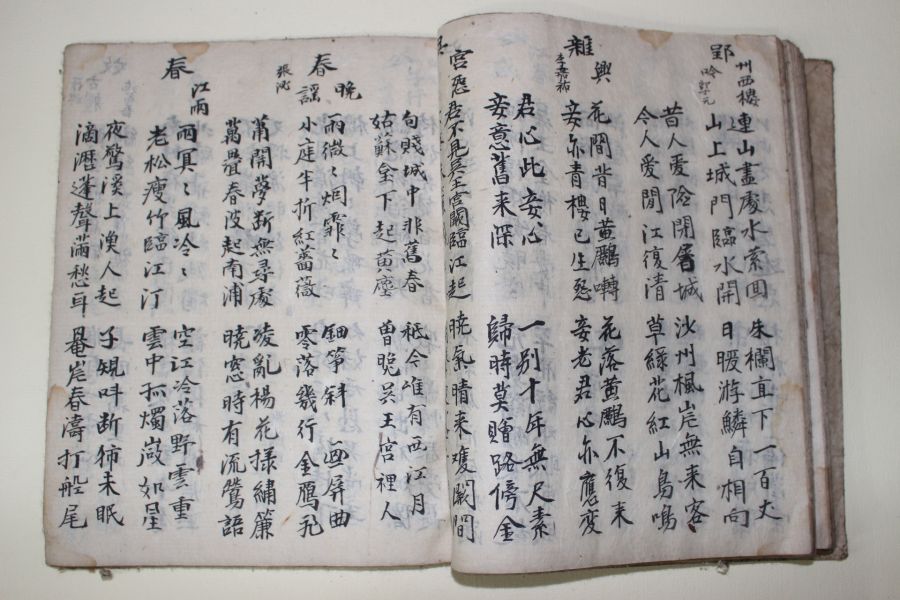 郢州西樓吟
連山盡處水縈回 朱欄直下一百丈
山上城門臨水開 日暖游鱗自相向
昔人愛險閉層城 沙州楓岸無来客
今人愛閒江復清 草綠花紅山鳥鳴
雜興 李嘉祐
花間昔日黃鸝囀 花落黃鸝不復来
妾亦青樓已生怨 妾老君心亦應變
君心此妾心 一別十年無尺素
妾意舊来深 歸時莫贈路傍金
宮怨 君不見吳王宮闕臨江起 曉氣晴来雙闕間
句賤城中非舊春 秪今唯有西江月
姑蘇下起黃塵 曾晚吳王宮裡人
春晚謠 張泌
雨微〻烟霏〻 鈿箏斜 画屏曲
小庭半折紅薔薇 零落幾行金鴈飛
蕭關夢斷無尋處 凌亂楊花撲繡簾
萬疊春波起南浦 曉窓時有流鶯語
春江雨
雨冥〻風冷〻 空江冷落野雲重
老松瘦竹臨江汀 雲中孤燭如星
夜驚溪上漁人起 子規叫斷猶未眠
滴瀝蓬聲滿愁耳 罨岸春濤打船尾